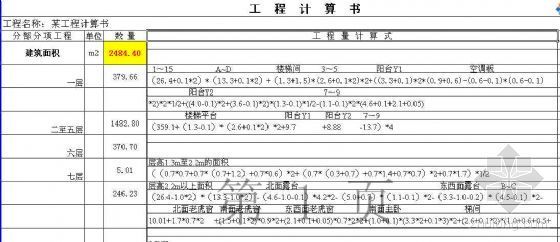 工 程 计 算 书
工程名称: 某工程计算书
分部分项工程 单位 数 量 工 程 量 计 算 式
建筑面积 m2 2484.40
1~15 A~D 楼梯间 3~5 阳台Y1 空调板
一层 379.66 (26.4+0.1*2)*(13.3+0.1*2)+(1.3+1.5)*(2.6+0.1*2)*2+((3.3+0.1)*2*(0.9+0.6)-(0.6-0.1)*(0.6-0.1)
阳台Y2 7~9
*2)*2*1/2+((4.0-0.1)*2+(3.6-0.1)*2)*(1.3-0.1)*1/2-(1.1-0.1)*2*(4.6+0.1+2.1+0.05)
楼梯平台 阳台Y1 阳台Y2 7~9
二至五层 1482.80 (359.1+(1.3-0.1)*(2.6+0.1*2)*2+9.7 +8.88 -13.7)*4
六层 370.70
层高1.3m至2.2m的面积
七层 5.01 ((0.7*0.7+0.7*(0.7+1.2)+0.7*0.6)*2+(0.7*(0.3+0.7)+0.7*1.4+0.7*0.7)*2+0.7*1.7)*1/2
层高2.2m以上面积 北面露台 东西面露台 B~C
246.23 (26.4-1.0*2)*(13.3-1.0*2)-(4.6-1.0-0.1)*4.2*2-(5.0+0.7)*(1.1-0.1)*2-(3.3-1.0-0.2)*(4.5-0.1)*2-
北面老虎窗 南面老虎窗 东西面老虎窗 南面主卧 梯间
第 1 页